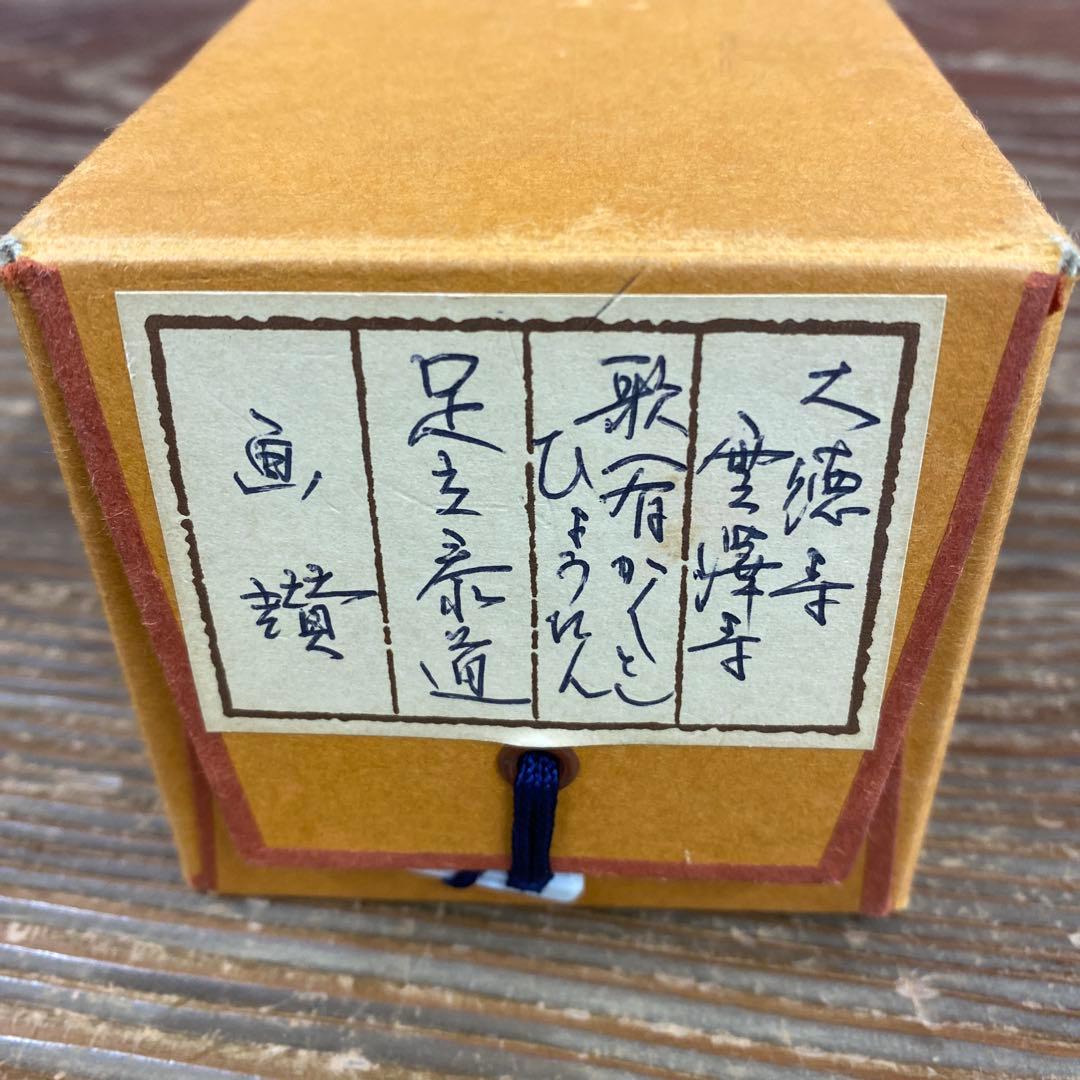 大徳寺
雲澤寺
歌入有かくとし
ひょうたん
足立泰道
画賛